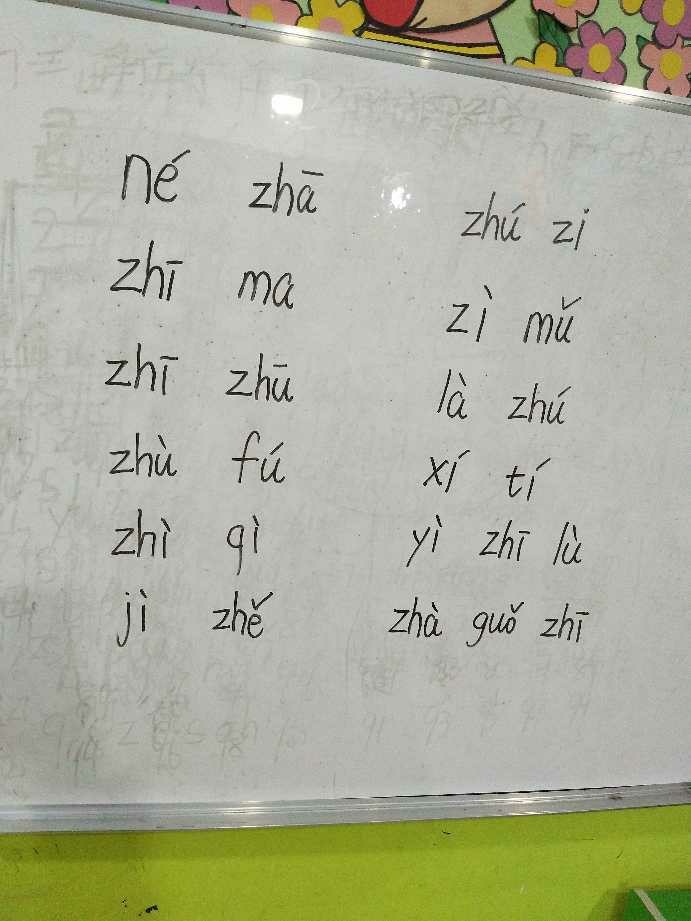 né zhā
zhī ma
zhī zhū
zhù fú
zhì qì
jì zhě
zhú zi
zì mǔ
là zhú
xí tí
yì zhī lù
zhà guǒ zhī